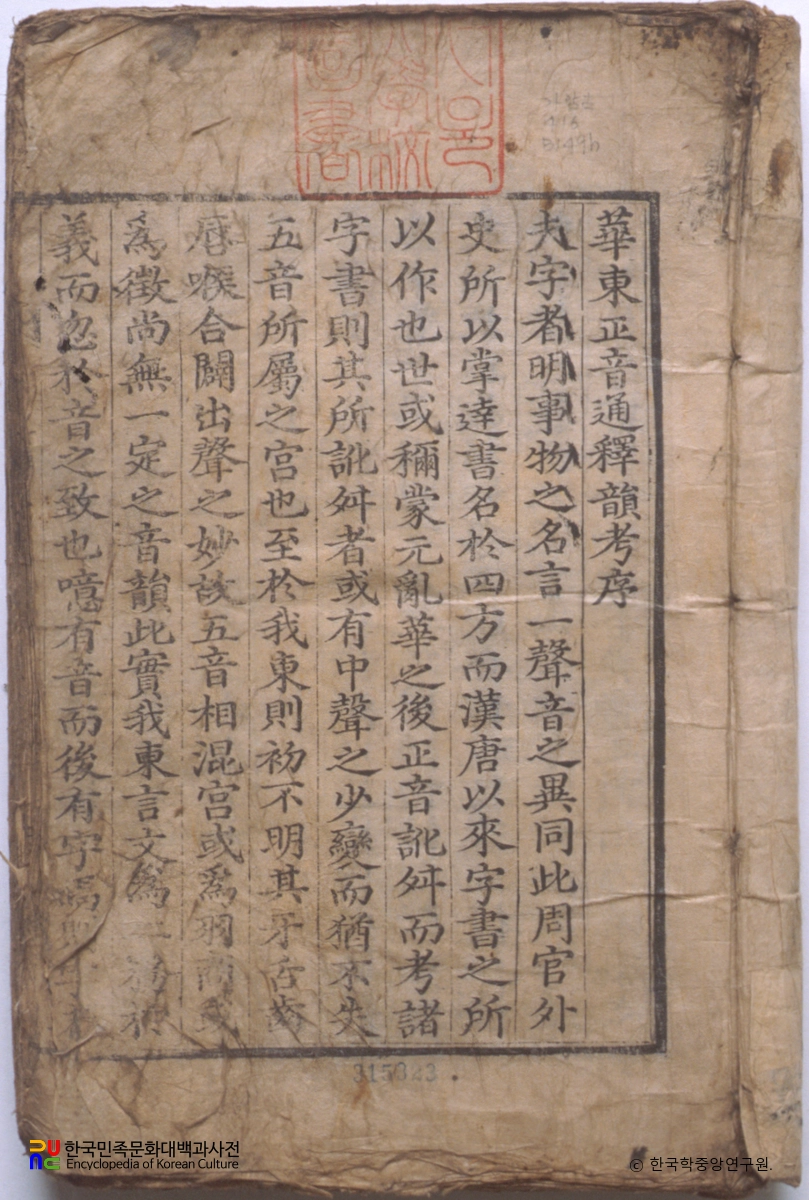 華東正音通釋韻考序
夫字者明事物之名言一聲音之異同此周官外
史所以掌達書名於四方而漢唐以來字書之所
以作也世或穪蒙元亂華之後正音訛舛而考諸
字書則其所訛舛者或有中聲之少變而猶不失
五音所屬之宮也至於我東則初不明其牙舌齒
唇喉合闢出聲之妙故五音相混宮或爲羽商或
爲徵尚無一定之音韻此實我東言文爲二務於
義而忽於音之致也噫有音而後有字
學校
書
315823
한국민족문화대백과사전
Encyclopedia of Korean Culture
© 한국학중앙연구원.